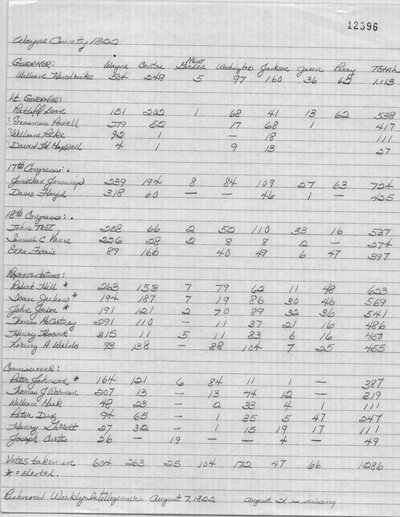 12396
Wayne County 1822
GOVERNOR: Wayne Centre New Garden Washington Jackson Green Perry TOTAL
William Hendricks 504 249 5 97 160 36 62 1113
Lt. GOVERNOR:
Ratliff Boone 151 202 1 68 41 13 62 538
Powell 279 52 17 68 1 417
William Polke 92 1 — 18 111
David H. Maxwell 4 1 9 13 27
17th Congress:
Jonathan Jennings 239 194 8 84 109 27 63 724
Davis Floyd 318 60 — — 46 1 — 425
18th Congress:
John Test 258 66 2 52 110 33 16 537
Samuel C. Vance 226 28 2 8 8 2 — 274
Ezra Ferris 89 166 40 49 6 47 397
Representative:
Robert Hill * 263 153 7 79 62 11 48 623
Isaac Julian * 194 187 7 19 86 30 46 569
John Jordan * 191 121 2 70 89 32 36 541
Thomas McCartney 291 110 — 11 37 21 16 486
Hoover 215 11 5 11 83 6 16 450
A. Waldo 93 138 — 88 104 7 25 455
Commissioner:
Peter Johnson * 164 121 6 84 11 1 — 387
Thomas J. Warman 207 13 — 13 74 12 — 319
William 48 23 — 2 33 4 1 111
Peter 94 65 — 1 35 5 47 247
Henry Garrett 27 32 — 1 15 19 17 111
Joseph Curtis 26 — 19 — — 4 — 49
Votes taken in 604 263 25 104 172 47 66 1286
* = elected.
Richmond Weekly Intelligencer, August 7, 1822 August 21 is missing